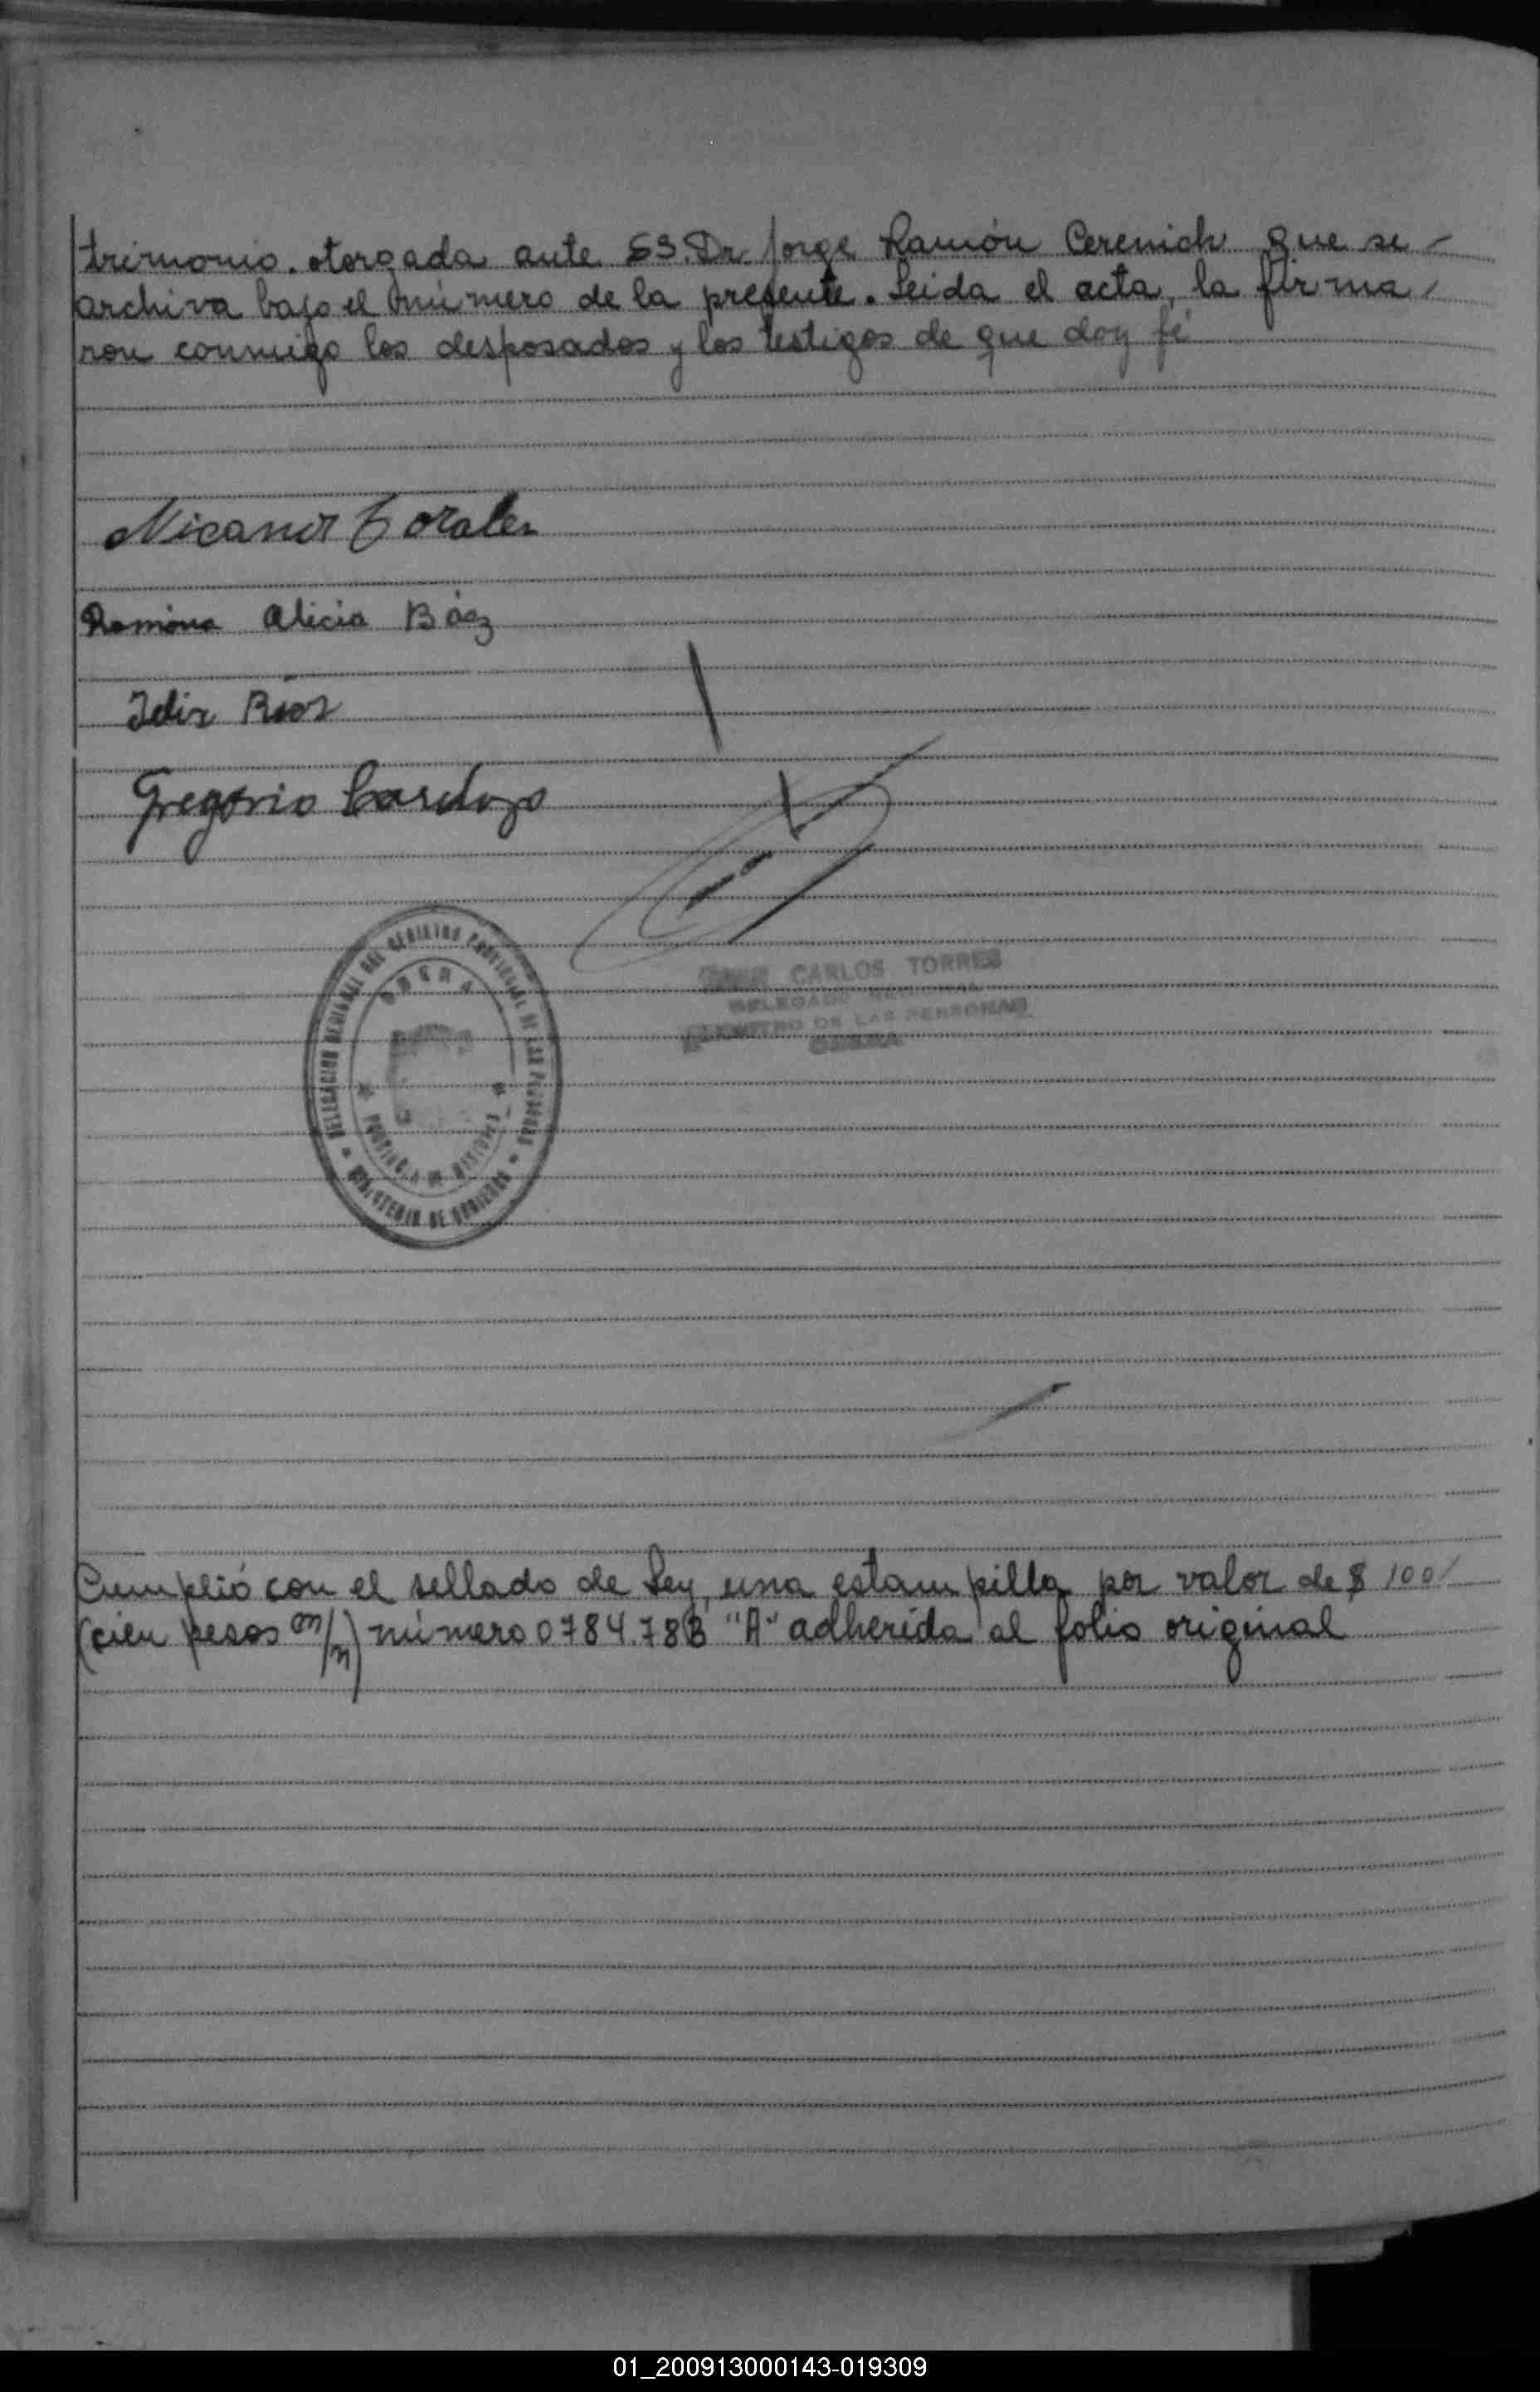 trimonio. otorgada ante S.S. Dr. Jorge Ramón Cerenich que se -
archiva bajo el número de la presente. Leida el acta, la firma,
ron conmigo los desposados y los testigos de que doy fé
Nicanor Corales
Ramóna Alicia Báez
Idir Ríos
Gregorio Cardozo
CARLOS TORRES
DELEGADO REGIONAL
REGISTRO DE LAS PERSONAS
OBERA
DELEGACION REGIONAL DEL REGISTRO PROVINCIAL DE LAS PERSONAS
OBERA
PROVINCIA DE MISIONES
MINISTERIO DE GOBIERNO
Cumplió con el sellado de Ley, una estampilla por valor de $ 100/
(cien pesos m/n) número 0784.78B "A" adherida al folio original
01_200913000143-019309